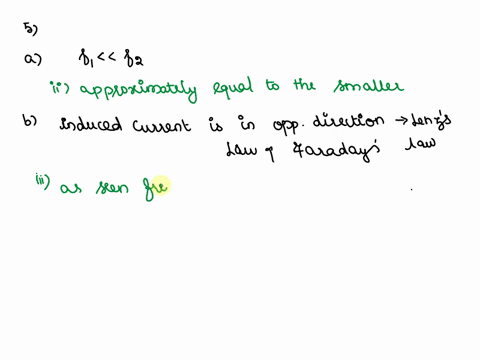 5)
a) f₁ << f₂
ii) approximately equal to the smaller
b) induced current is in opp. direction → Lenz's
law & Faraday's law
(ii) as seen fr